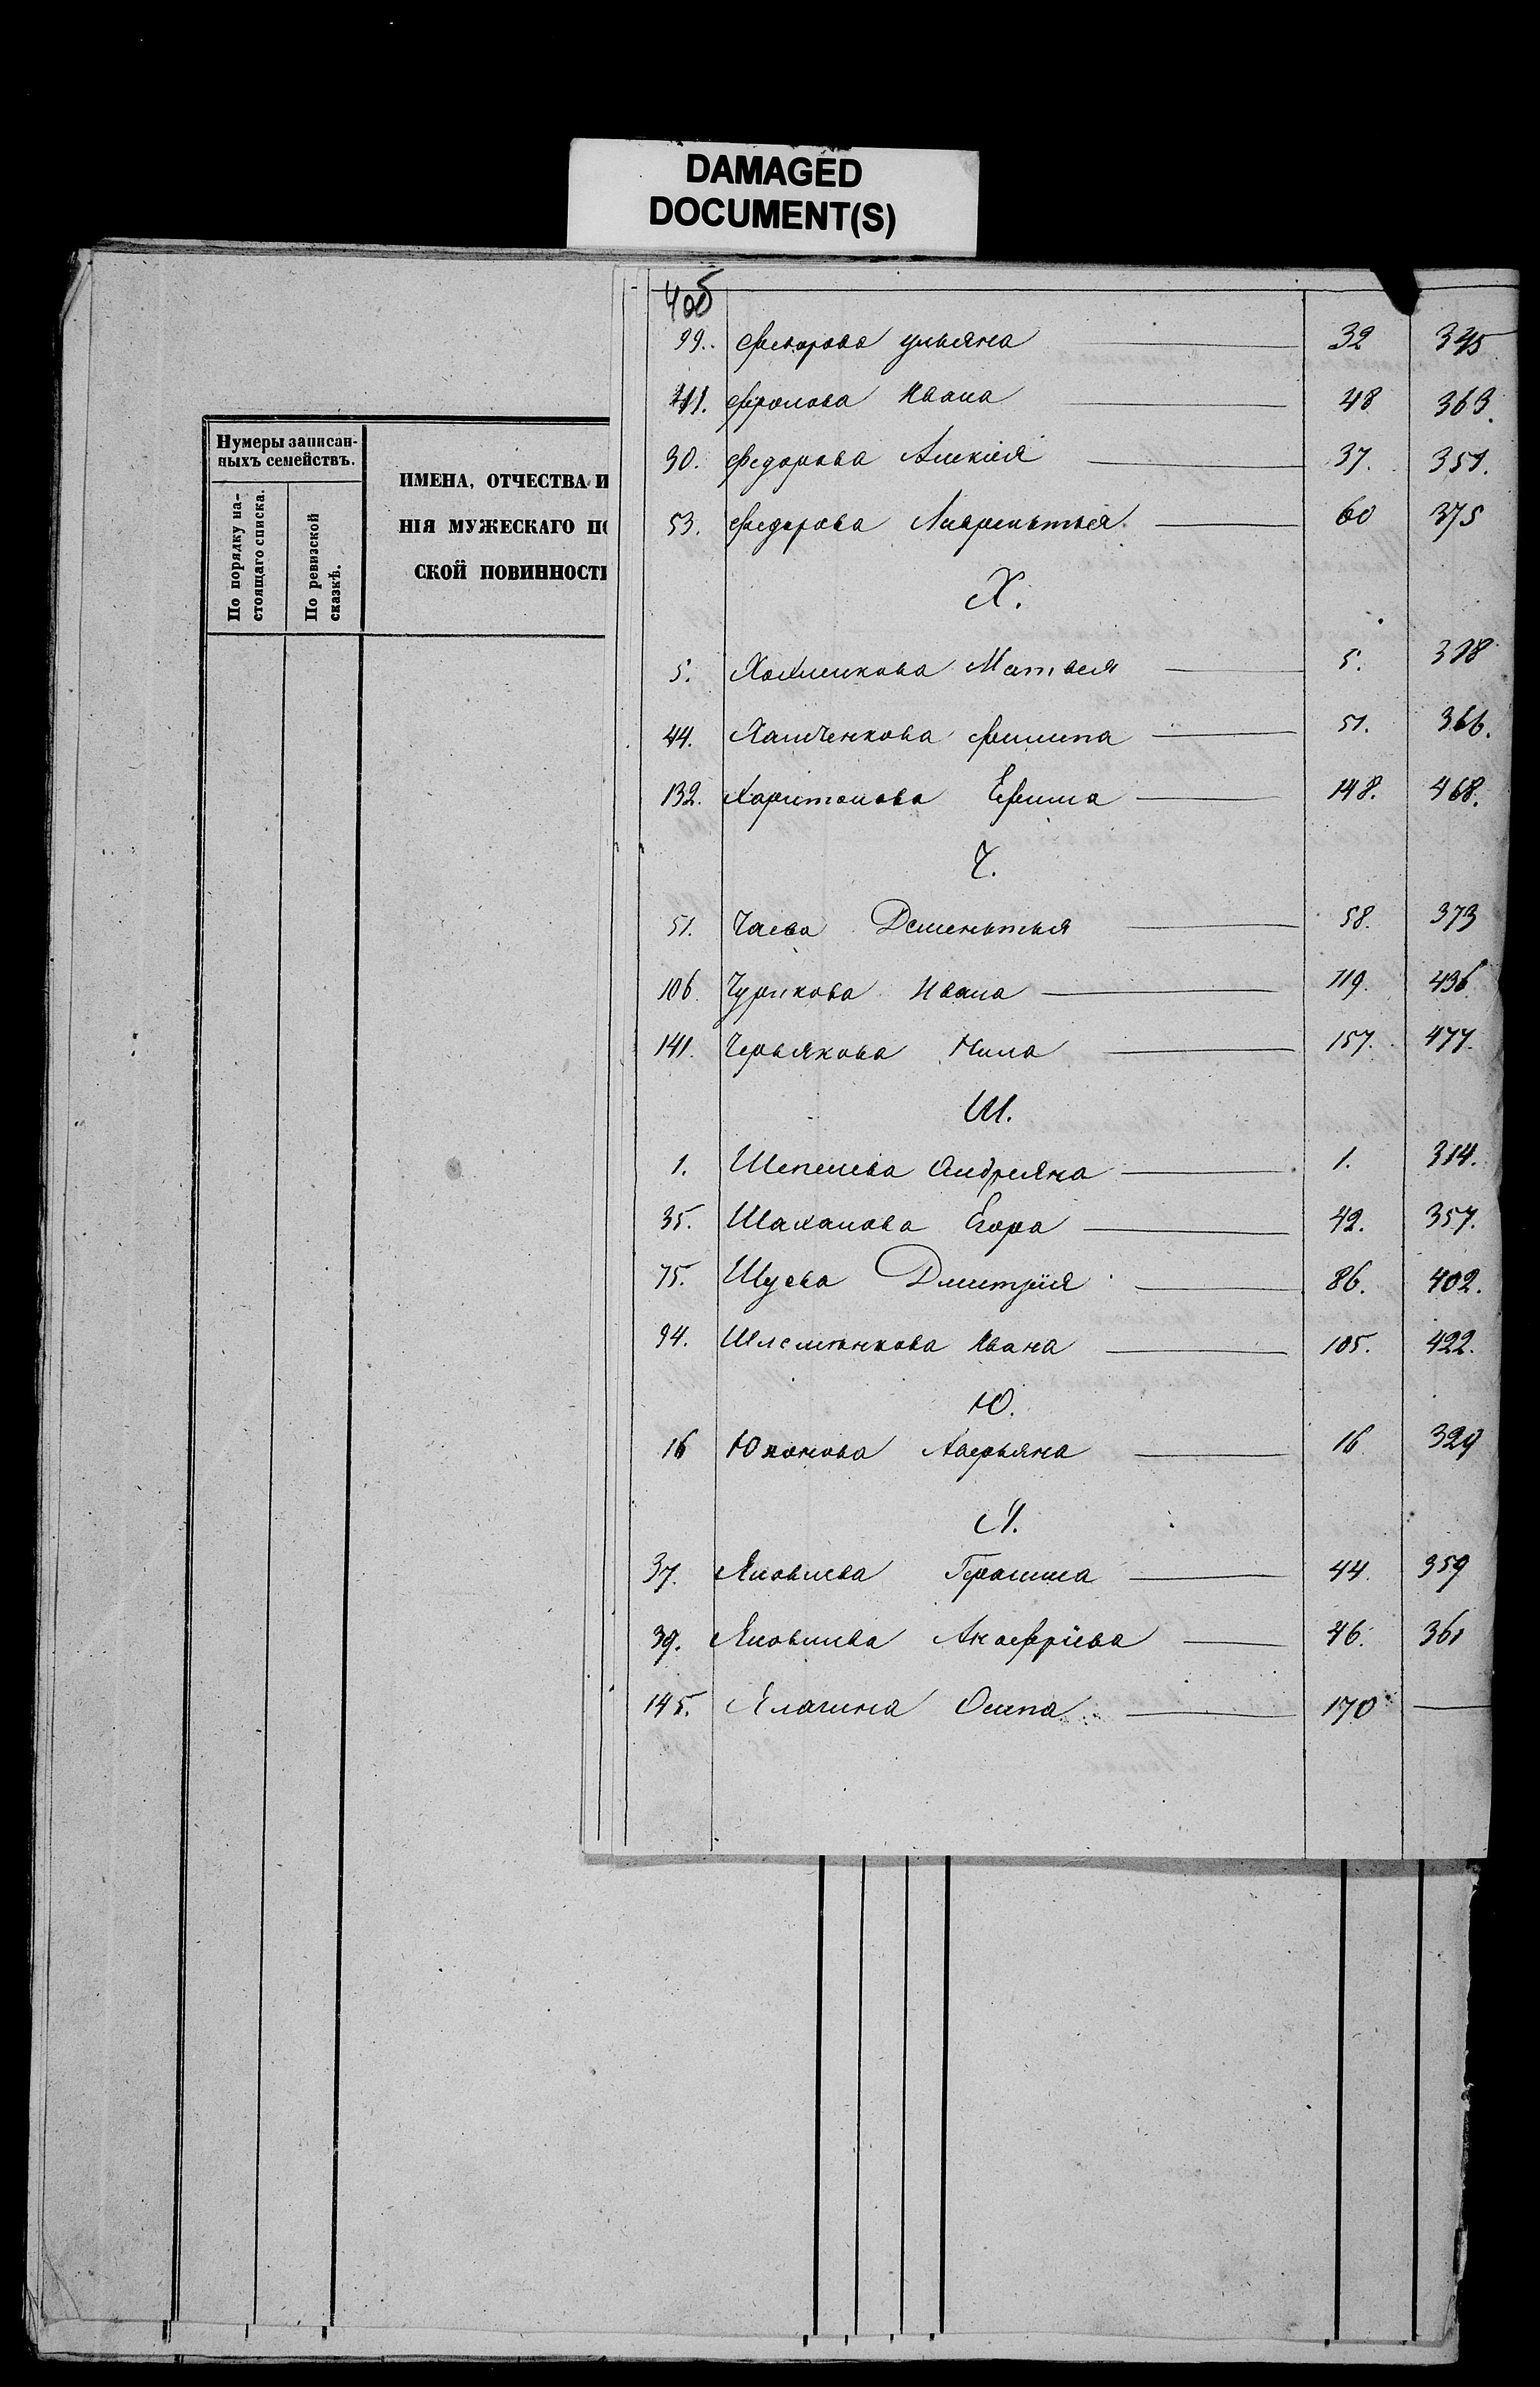 DAMAGED
DOCUMENT(S)
Нумеры записан-
ныхъ семействъ.
По порядку на-
стоящаго списка.
По ревизской
сказкѣ.
ИМЕНА, ОТЧЕСТВА И
НІЯ МУЖЕСКАГО ПО
СКОЙ ПОВИННОСТИ
406
99. Ульяна 32
41. Фролова Ивана 48 363.
30. Федорова Алексѣя 37. 351.
53. Федорова Лаврентьея 60 375
Х.
5. Матвея 5. 318
44. Хамченкова Филипа 51. 366.
132. Харитонова Ефима 148. 468.
Ч.
51. Чаева Дементья 58. 373
106. Чурикова Ивана 119. 436
141. Червякова Нила 157. 477.
Ш.
1. Шепелева Андреяна 1. 314.
35. Шаханова Егора 42. 357.
75. Шуева Дмитрія 86. 402.
94. Ивана 105. 422.
Ю.
16 Юконова Аверьяна 16 329
Я.
37. Яковлева Герасима 44. 359
39. Яковлева Анофріева 46. 361
145. Ялагина Осипа 170